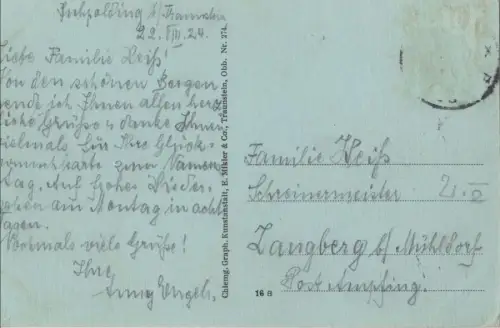 Ruhpolding b/Traunstein
22. VIII. 24.
Liebe Familie Heiß!
Von den schönen Bergen
sende ich Ihnen allen herz
liche Grüße u danke Ihnen
vielmals für Ihre Glück-
wunschkarte zum Namens
tag. Auf frohes Wieder-
sehen am Montag in acht
Tagen.
Nochmals viele Grüße!
Ihre
Anny Engel.
Chiemg. Graph. Kunstanstalt, E. Mister & Co., Traunstein, Obb. Nr. 274.
16 8
Familie Heiß
Schreinermeister
Zangberg b/Mühldorf
Post Ampfing.